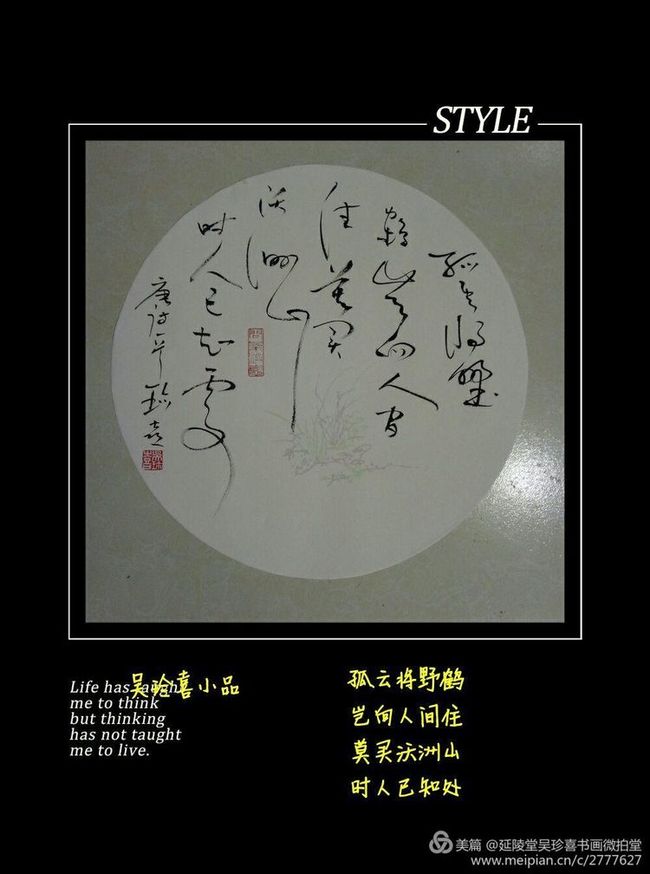 STYLE
孤云将野
鹤岂向人间
住莫买
沃洲山
时人已知处
唐诗 珍喜
吴珍喜小品
Life has taught
me to think
but thinking
has not taught
me to live.
孤云将野鹤
岂向人间住
莫买沃洲山
时人已知处
美篇 @延陵堂吴珍喜书画微拍堂
www.meipian.cn/c/2777627